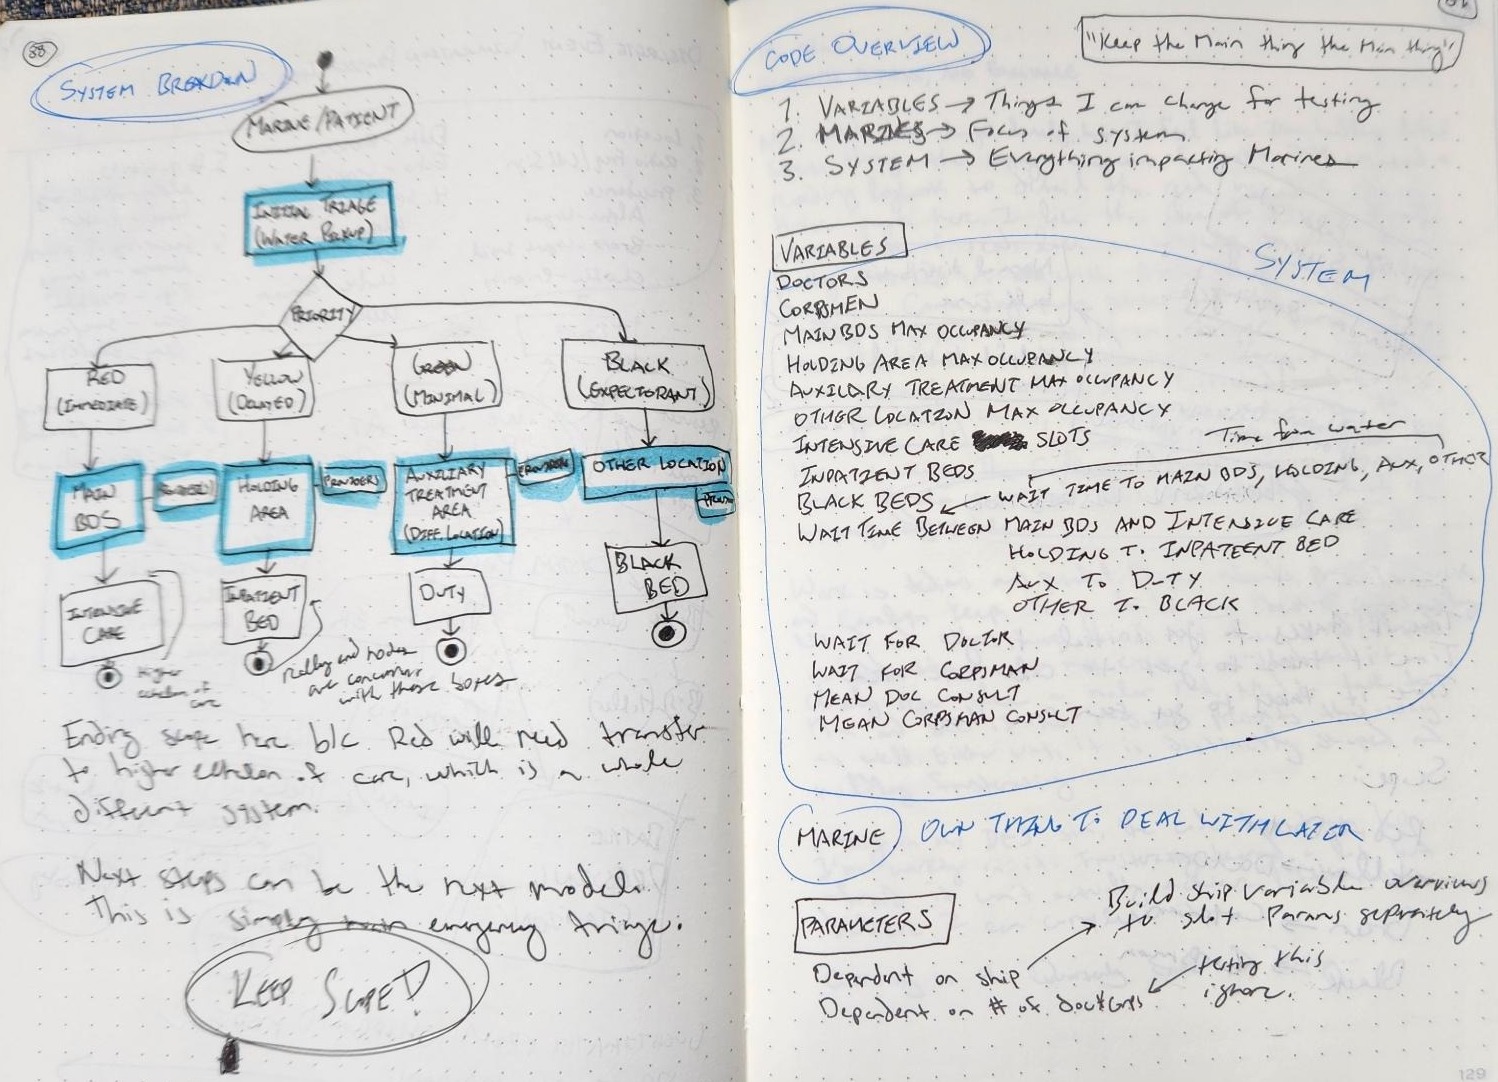 38
SYSTEM BREAKDOWN
MARINE/PATIENT
INITIAL TRIAGE
(WATER PICKUP)
PRIORITY
RED
(IMMEDIATE)
YELLOW
(DELAYED)
GREEN
(MINIMAL)
BLACK
(EXPECTORANT)
MAIN
BDS
PROVIDERS
HOLDING
AREA
PROVIDERS
AUXILIARY
TREATMENT
AREA
(DIFF. LOCATION)
PROVIDERS
OTHER LOCATION
INTENSIVE
CARE
INPATIENT
BED
DUTY
BLACK
BED
Higher
echelon of
care
and nodes
are concurrent
with those boxes
Ending scope here b/c Red will need transfer
to higher echelon of care, which is a whole
different system.
Next steps can be the next model.
This is simply emergency triage.
KEEP SCOPE!
CODE OVERVIEW
"Keep the Main thing the Main thing"
1. VARIABLES → Things I can change for testing
2. MARINES → Focus of system
3. SYSTEM → Everything impacting Marines
VARIABLES
SYSTEM
DOCTORS
CORPSMEN
MAIN BDS MAX OCCUPANCY
HOLDING AREA MAX OCCUPANCY
AUXILARY TREATMENT MAX OCCUPANCY
OTHER LOCATION MAX OCCUPANCY
INTENSIVE CARE SLOTS
Time from water
INPATIENT BEDS
BLACK BEDS ← WAIT TIME TO MAIN BDS, HOLDING, AUX, OTHER
WAIT TIME BETWEEN MAIN BDS AND INTENSIVE CARE
HOLDING TO INPATEENT BED
AUX TO DUTY
OTHER TO BLACK
WAIT FOR DOCTOR
WAIT FOR CORPSMAN
MEAN DOC CONSULT
MEAN CORPSMAN CONSULT
MARINE OWN THING TO DEAL WITH LATER
PARAMETERS
Build ship variable overviews
to slot Params seperately
Dependent on ship
Dependent on # of doc/corps
testing this
ignore.
129